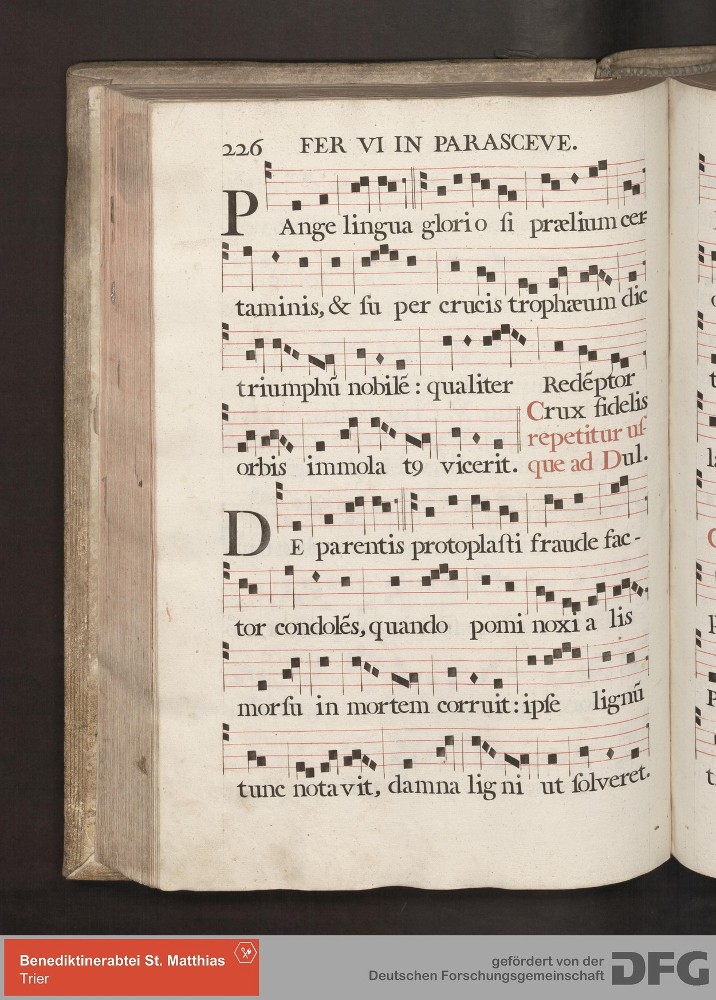 226 FER VI IN PARASCEVE.
PAnge lingua glorio ſi prælium cer-
taminis, & ſu per crucis trophæum dic
triumphū nobilē : qualiter Redēptor
orbis immola t9 vicerit. Crux fidelis
repetitur uſ-
que ad Dul.
DE parentis protoplaſti fraude fac-
tor condolēs, quando pomi noxi a lis
morſu in mortem corruit: ipſe lignū
tunc notavit, damna lig ni ut ſolveret.
Benediktinerabtei St. Matthias
Trier
gefördert von der
Deutschen Forschungsgemeinschaft DFG